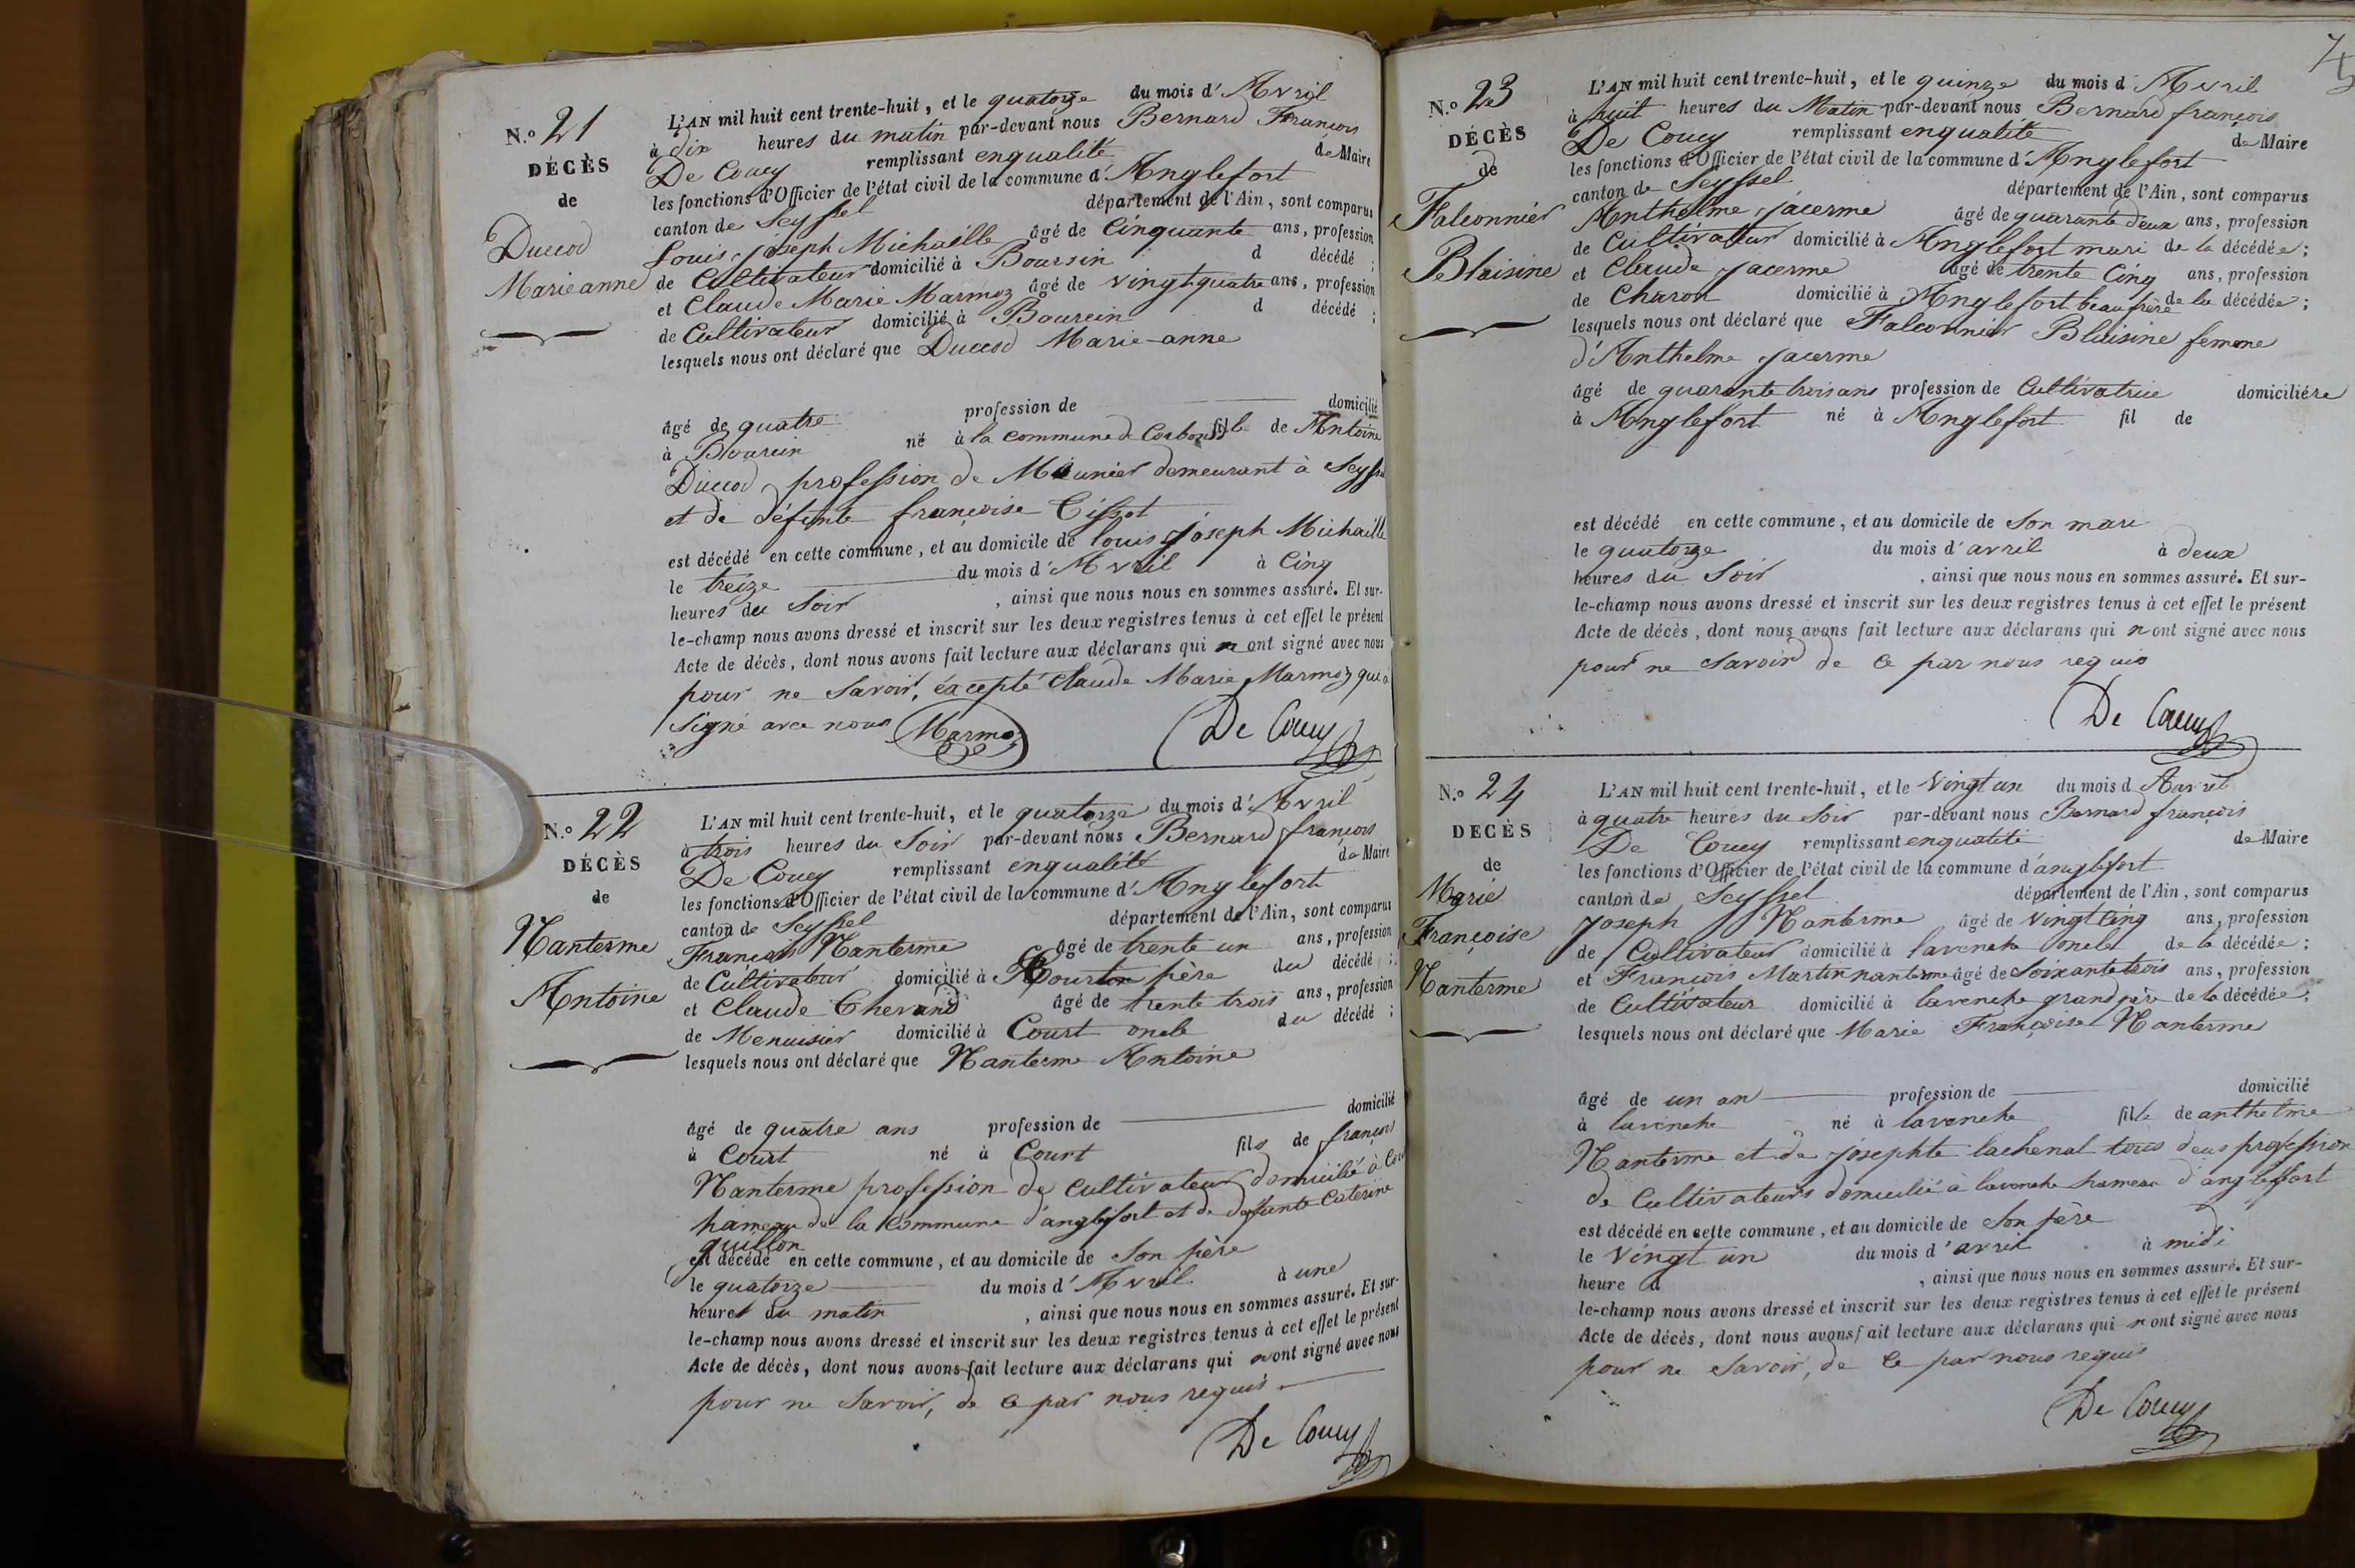 N.º 21
DÉCÈS
de
Duccod
Marie anne
L'AN mil huit cent trente-huit, et le quatorze du mois d'Avril
à dix heures du matin par-devant nous Bernard François
De Coucy remplissant en qualité de Maire
les fonctions d'Officier de l'état civil de la commune d'Anglefort
canton de Seyssel département de l'Ain, sont comparus
Louis joseph Michaille âgé de Cinquante ans, profession
de Cultivateur domicilié à Boursin d décédé ;
et Claude Marie Marmoz âgé de vingt quatre ans, profession
de Cultivateur domicilié à Bourcin d décédé ;
lesquels nous ont déclaré que Duccod Marie-anne
âgé de quatre profession de domicilié
à Bourcin né à la commune de Corbonod fille de Antoine
Duccod, profession de Meunier demeurant à Seyssel
et de défunte françoise Cissot
est décédé en cette commune, et au domicile de louis Joseph Michaille
le treize du mois d'Avril à Cinq
heures du Soir , ainsi que nous nous en sommes assuré. Et sur-
le-champ nous avons dressé et inscrit sur les deux registres tenus à cet effet le présent
Acte de décès, dont nous avons fait lecture aux déclarans qui n ont signé avec nous
pour ne Savoir, éxcepté Claude Marie Marmoz qui à
Signé avec nous Marmoz De Coucy
N.º 22
DÉCÈS
de
Nanterme
Antoine
L'AN mil huit cent trente-huit, et le quatorze du mois d'Avril
à trois heures du Soir par-devant nous Bernard françois
De Coucy remplissant en qualité de Maire
les fonctions d'Officier de l'état civil de la commune d'Anglefort
canton de Seyssel département de l'Ain, sont comparus
François Nanterme âgé de trente un ans, profession
de Cultivateur domicilié à père du décédé ;
et Claude Chevand âgé de trente trois ans, profession
de Menuisier domicilié à Court oncle du décédé ;
lesquels nous ont déclaré que Nanterme Antoine
âgé de quatre ans profession de domicilié
à Court né à Court fils de françois
Nanterme profession de Cultivateur domicilié à Court
hameau de la Commune d'anglefort et de défunte Caterine
guillon
est décédé en cette commune, et au domicile de Son père
le quatorze du mois d'Avril à une
heures du matin , ainsi que nous nous en sommes assuré. Et sur-
le-champ nous avons dressé et inscrit sur les deux registres tenus à cet effet le présent
Acte de décès, dont nous avons fait lecture aux déclarans qui n'ont signé avec nous
pour ne Savoir, de ce par nous requis.
De Coucy
N.º 23
DÉCÈS
de
Falconnier
Blaisine
L'AN mil huit cent trente-huit, et le quinze du mois d Avril
à huit heures du Matin par-devant nous Bernard françois
De Coucy remplissant en qualité de Maire
les fonctions d'Officier de l'état civil de la commune d'Anglefort
canton de Seyssel département de l'Ain, sont comparus
Anthelme Jacerme âgé de quarante deux ans, profession
de Cultivateur domicilié à Anglefort mari de la décédée ;
et Claude Jacerme âgé de trente Cinq ans, profession
de Charon domicilié à Anglefort beau frère de la décédée ;
lesquels nous ont déclaré que Falconnier Blaisine femme
d'Anthelme Jacerme
âgé de quarante trois ans profession de Cultivatrice domiciliére
à Anglefort né à Anglefort fil de
est décédé en cette commune, et au domicile de Son mari
le quatorze du mois d'avril à deux
heures du Soir , ainsi que nous nous en sommes assuré. Et sur-
le-champ nous avons dressé et inscrit sur les deux registres tenus à cet effet le présent
Acte de décès, dont nous avons fait lecture aux déclarans qui n ont signé avec nous
pour ne Savoir de ce par nous requis
De Coucy
N.º 24
DÉCÈS
de
Marie
Françoise
Nanterme
L'AN mil huit cent trente-huit, et le Vingt un du mois d Aavril
à quatre heures du Soir par-devant nous Bernard françois
De Coucy remplissant en qualité de Maire
les fonctions d'Officier de l'état civil de la commune d'anglefort
canton de Seyssel département de l'Ain, sont comparus
Joseph Nanterme âgé de Vingt Cinq ans, profession
de Cultivateur domicilié à lavenche oncle de la décédée ;
et François Martin nanterme âgé de Soixante trois ans, profession
de Cultivateur domicilié à lavenche grand père de la décédée ;
lesquels nous ont déclaré que Marie Françoise Nanterme
âgé de un an profession de domicilié
à lavenche né à lavenche fille de anthelme
Nanterme et de josephte lachenal tous deus profession
de Cultivateurs domicilié à lavenche hameau d'anglefort
est décédé en cette commune, et au domicile de Son père
le Vingt un du mois d'avril à midi
heure d , ainsi que nous nous en sommes assuré. Et sur-
le-champ nous avons dressé et inscrit sur les deux registres tenus à cet effet le présent
Acte de décès, dont nous avons fait lecture aux déclarans qui n ont signé avec nous
pour ne Savoir, de ce par nous requis
De Coucy